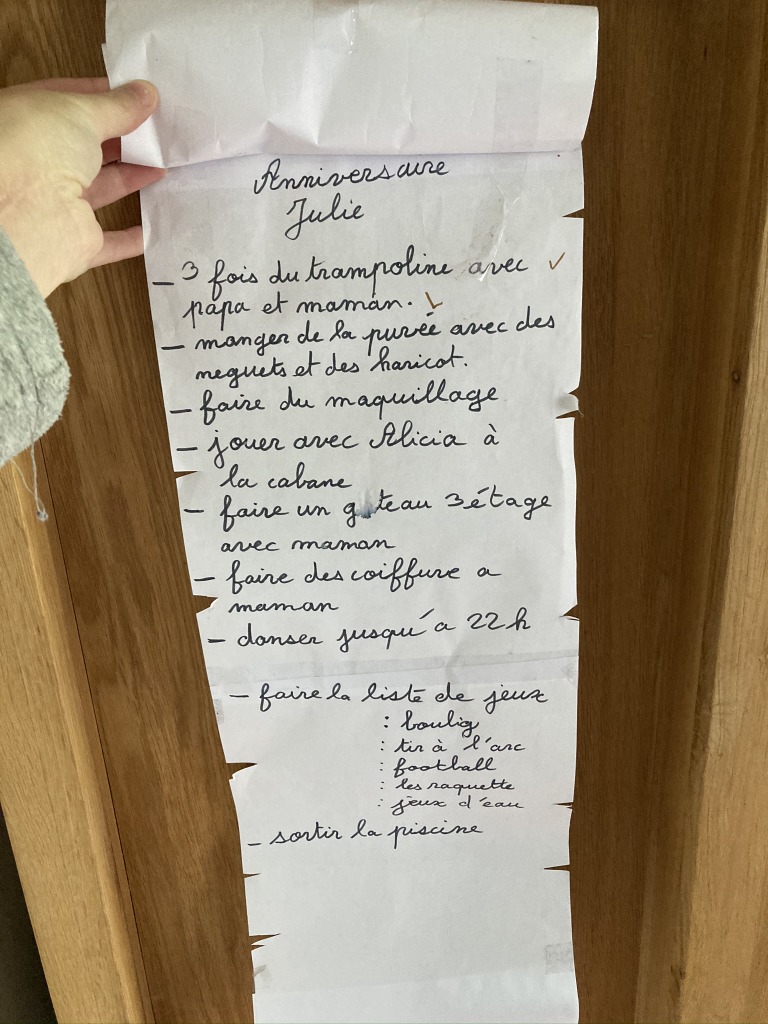 Anniversaire
Julie
- 3 fois du trampoline avec ✓
papa et maman. ✓
- manger de la purée avec des
neguets et des haricot.
- faire du maquillage
- jouer avec Alicia à
la cabane
- faire un gateau 3 étage
avec maman
- faire des coiffure a
maman
- danser jusqu'a 22h
- faire la liste de jeux
: boulig
: tir à l'arc
: football
: les raquette
: jeux d'eau
- sortir la piscine